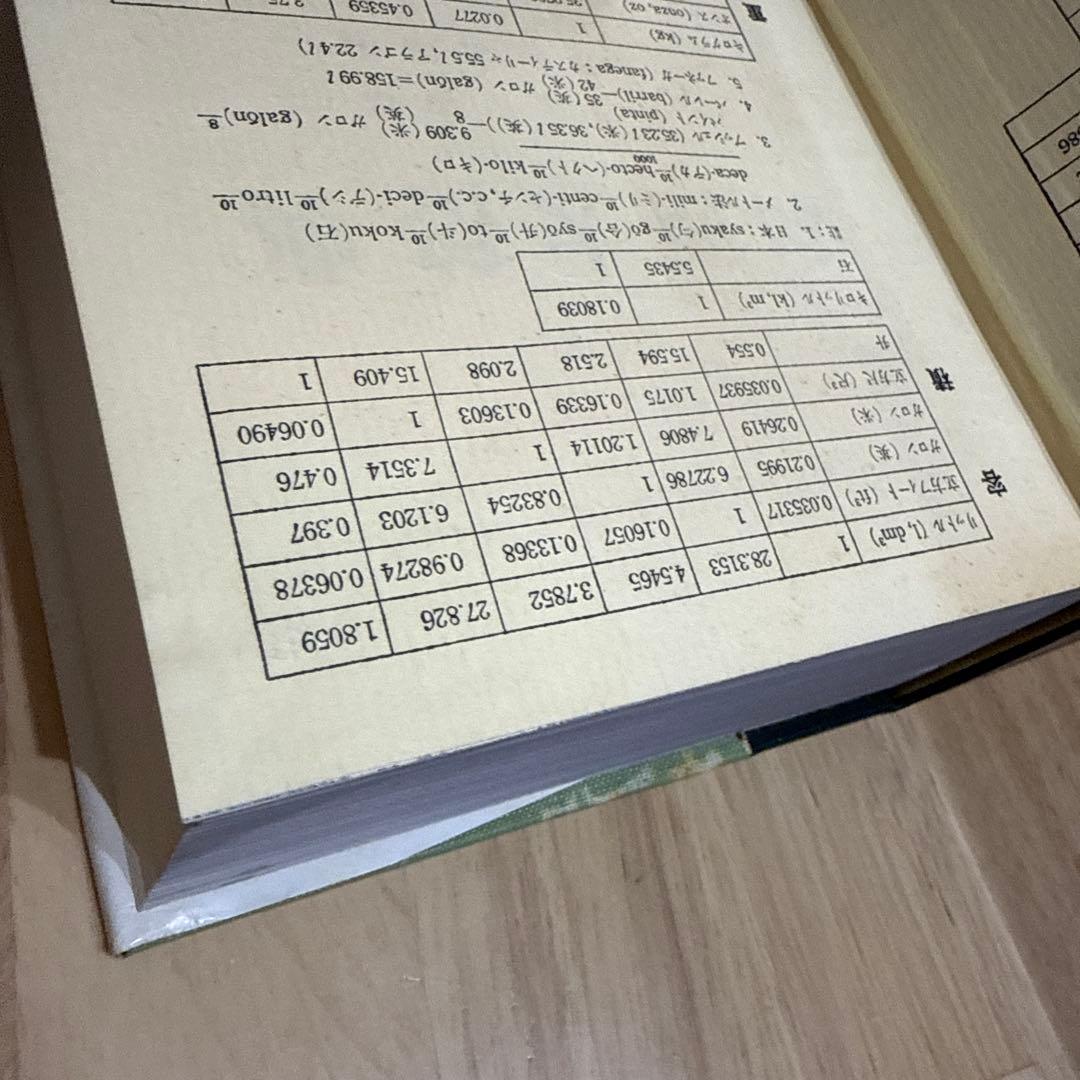 容積
リットル (l, dm³) 1 28.3153 4.5465 3.7852 27.826 1.8059
立方フィート (ft³) 0.035317 1 0.16057 0.13368 0.98274 0.06378
ガロン (英) 0.21995 6.22786 1 0.83254 6.1203 0.397
ガロン (米) 0.26419 7.4806 1.20114 1 7.3514 0.476
立方尺 (尺³) 0.035937 1.0175 0.16339 0.13603 1 0.06490
升 0.554 15.594 2.518 2.098 15.409 1
キロリットル (kl, m³) 1 0.18039
石 5.5435 1
註:1. 日本:syaku(勺)—10—gō(合)—10—syō(升)—10—to(斗)—10—koku(石)
2. メートル法:mili-(ミリ)—10—centi-(センチ, c.c.)—10—deci-(デシ)—10—litro—10
deca-(デカ)—10—hecto-(ヘクト)—10—kilo-(キロ)
1000
3. ブッシェル (35.23 l (米), 36.35 l (英))— 9.309 (米) 8 (英) ガロン (galón)—8
パイント (pinta)
4. バーレル (barril)— 35 (英) 42 (米) ガロン (galón)=158.99 l
5. ファネーガ (fanega:カスティーリャ 55.5 l, アラゴン 22.4 l)
重
キログラム (kg) 1 0.0277 0.45359
オンス (onza, oz)